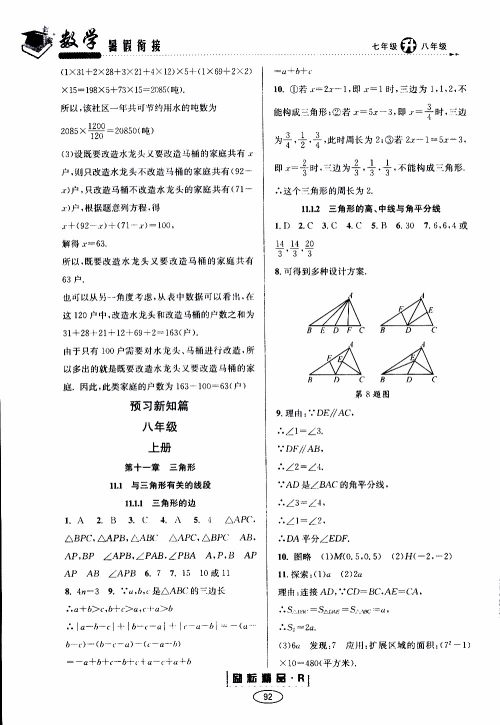 数学
暑假衔接
七年级升八年级
(1×31+2×28+3×21+4×12)×5+(1×69+2×2)
×15=198×5+73×15=2085(吨)
所以,该社区一年共可节约用水的吨数为
2085×1200/120=20850(吨)
(3)设既要改造水龙头又要改造马桶的家庭共有x
户,则只改造水龙头不改造马桶的家庭共有(92-
x)户,只改造马桶不改造水龙头的家庭共有(71-
x)户,根据题意列方程,得
x+(92-x)+(71-x)=100,
解得x=63.
所以,既要改造水龙头又要改造马桶的家庭共有
63户.
也可以从另一角度考虑,从表中数据可以看出,在
这120户中,改造水龙头和改造马桶的户数之和为
31+28+21+12+69+2=163(户).
由于只有100户需要对水龙头、马桶进行改造,所
以多出的就是既要改造水龙头又要改造马桶的家
庭.因此,此类家庭的户数为163-100=63(户)
预习新知篇
八年级
上册
第十一章 三角形
11.1 与三角形有关的线段
11.1.1 三角形的边
1. A 2. B 3. C 4. A 5. 4 △APC,
△BPC,△APB,△ABC △APC,△BPC AB,
AP,BP ∠APB,∠PAB,∠PBA A,P,B AP
AP AB ∠APB 6. 7 7. 15 10或11
8. 4n-3 9. ∵a,b,c是△ABC的三边长
∴a+b>c,b+c>a,c+a>b
∴|a-b-c|+|b-c-a|+|c-a-b|=-(a-
b-c)-(b-c-a)-(c-a-b)
=-a+b+c-b+c+a-c+a+b
=a+b+c
10. ①若x=2x-1,即x=1时,三边为1,1,2,不
能构成三角形;②若x=5x-3,即x=3/4时,三边
为3/4,1/2,3/4,此时周长为2;③若2x-1=5x-3,
即x=2/3时,三边为2/3,1/3,1/3,不能构成三角形.
∴这个三角形的周长为2.
11.1.2 三角形的高、中线与角平分线
1. D 2. C 3. C 4. C 5. B 6. 30 7. 6,6,4或
14/3,14/3,20/3
8. 可得到多种设计方案.
A A
F E
B E D F C B D C
A A
F E E
B D C B D C
第8题图
9. 理由:∵DE∥AC,
∴∠1=∠3.
∵DF∥AB,
∴∠2=∠4.
∵AD是∠BAC的角平分线,
∴∠3=∠4,
∴∠1=∠2,
∴DA平分∠EDF.
10. 图略 (1)M(0.5,0.5) (2)H(-2,-2)
11. 探索:(1)a (2)2a
理由:连接AD,∵CD=BC,AE=CA,
=a,
∴S₂=2a.
(3)6a 发现:7 应用:扩展区域的面积:(7²-1)
×10=480(平方米).
励耘精品·R
92